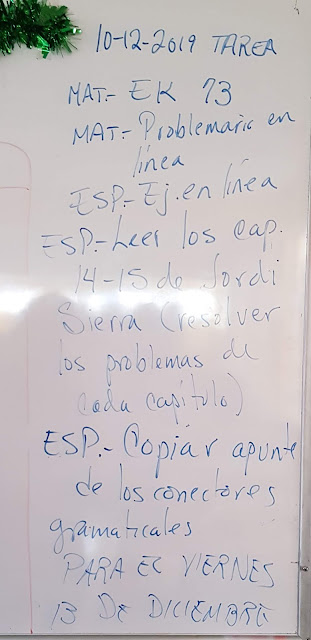 10-12-2019 TAREA
MAT.- EK 73
MAT.- Problemario en
línea
ESP.- Ej. en línea
ESP.- Leer los cap.
14-15 de Jordi
Sierra (resolver
los problemas de
cada capítulo)
ESP.- Copiar apunte
de los conectores
gramaticales
PARA EL VIERNES
13 DE DICIEMBRE